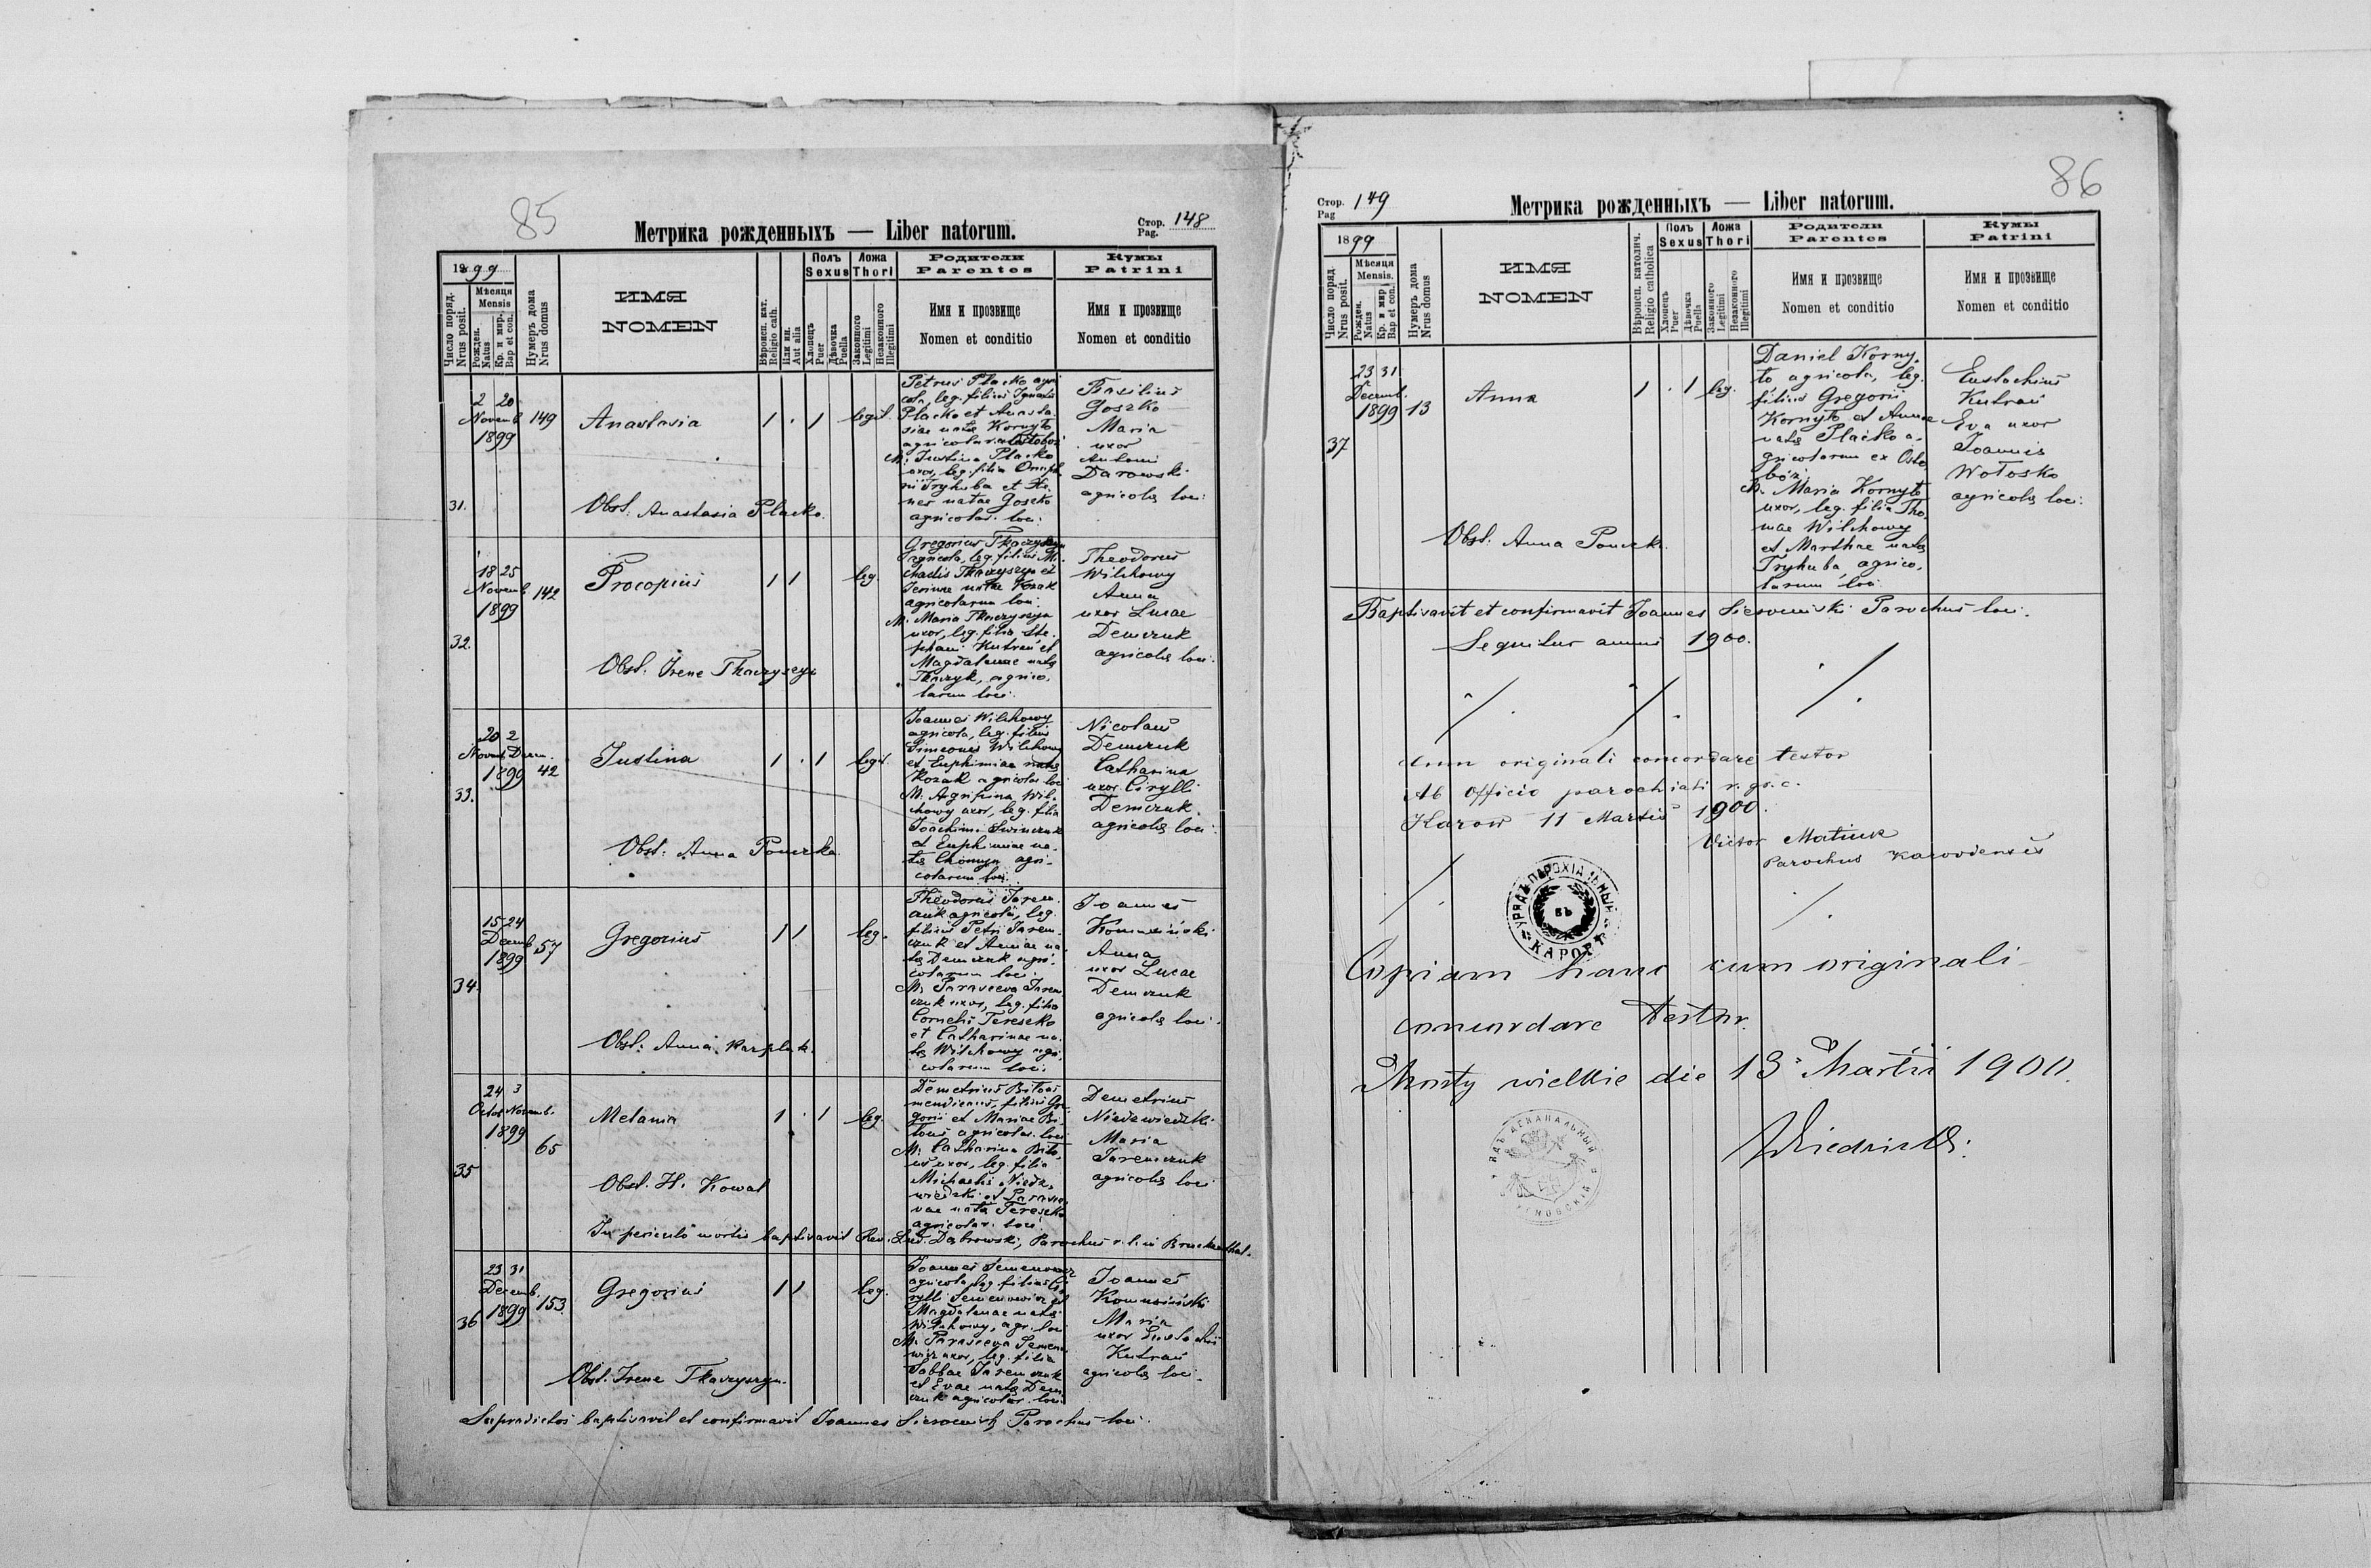 85
Метрика рожденныхъ — Liber natorum.
Стор. 148
Pag.
1899
Число поряд.
Nrus posit.
Мѣсяця
Mensis
Рожден.
Natus
Кр. и мир.
Bap et con.
Нумеръ дома
Nrus domus
ИМЯ
NOMEN
Вѣроисп. кат.
Religio cath.
Или ин.
Aut alia
Полъ
Sexus
Хлопецъ
Puer
Дѣвочка
Puella
Ложа
Thori
Законного
Legitimi
Незаконного
Illegitimi
Родители
Parentes
Имя и прозвище
Nomen et conditio
Кумы
Patrini
Имя и прозвище
Nomen et conditio
31.
2 20
Novemb.
1899
149
Anastasia
1 . 1 legit.
Obst. Anastasia Placko.
Petrus Placko agri
cola, leg. filius Ignatii
Placko et Anasta-
siae natae Kornyto
agricolar.
M: Justina Placko
uxor, leg. filia Onuph
rii Tryhuba et
natae Goszko
agricolar. loci.
Basilius
Goszko
Maria
uxor
Antoni
Darowski
agricolae loci.
32.
18 25
Novemb.
1899
142
Procopius
1 1 leg.
Obst. Irene Tkaczyszyn
Gregorius Tkaczyszyn
agricola, leg. filius Mi
chaelis Tkaczyszyn et
Irenae natae Kozak
agricolarum loci.
M. Maria Tkaczyszyn
uxor, leg. filia Ste-
phani Kutrań et
Magdalenae natae
Tkaczyk, agrico-
larum loci.
Theodorus
Wilchowy
Anna
uxor Lucae
Demczuk
agricolae loci.
33.
20 2
Novemb. Decem.
1899
42
Justina
1 . 1 legit.
Obst. Anna Pouczka
Joannes Wilchowy
agricola, leg. filius
Simeonis Wilchowy
et Euphimiae natae
Kozak agricolar. loci
M. Agripina Wil-
chowy uxor, leg. filia
Joachimi Swinczuk
et Euphimiae na-
tae Chomyn agri-
colarum loci.
Nicolaus
Demczuk
Catharina
uxor Cirylli
Demczuk
agricolae loci.
34.
15 24
Decemb.
1899
57
Gregorius
1 1 leg.
Obst. Anna Karplak.
Theodorus Jarem-
czuk agricola, leg.
filius Petri Jarem-
czuk et Annae na-
tae Demczuk agri-
colarum loci.
M. Parasceva Jarem
czuk uxor, leg. filia
Cornelii Tereszko
et Catharinae na-
tae Wilchowy agri-
colarum loci.
Joannes
Anna
uxor Lucae
Demczuk
agricolae loci.
35
24 3
Octob. Novemb.
1899
65
Melania
1 . 1 leg.
Obst. H. Kowal
Demetrius Bitous
mendicus, filius Gre
gorii et Mariae Bi-
tous agricolar. loci
M. Catharina Bito
us uxor, leg. filia
Michaelis Niedz-
wiedzki et Parasce
vae natae Tereszko
agricolar. loci.
Demetrius
Niedzwiedzki
Maria
Jaremczuk
agricolae loci
In periculo mortis baptisavit Rev. Lud. Dąbrowski, Parochus r. l. in Bruckenthal.
36
23 31
Decemb.
1899
153.
Gregorius
1 1 leg.
Obst. Irene Tkaczyszyn.
Joannes Semenowicz
agricola, leg. filius Ci
rylli Semenowicz et
Magdalenae natae
Wilchowy, agr. loci
M. Parasceva Semeno
wicz uxor, leg. filia
Sabbae Jaremczuk
et Evae natae Dem
czuk agricolar. loci
Joannes
Maria
uxor Eustachii
Kutrań
agricolae loci.
Supradictos baptisavit et confirmavit Joannes Sierociński Parochus loci.
86
Стор. 149
Pag
Метрика рожденныхъ — Liber natorum.
1899
Число поряд.
Nrus posit.
Мѣсяця
Mensis.
Рожден.
Natus
Кр. и мир.
Bap et con.
Нумеръ дома
Nrus domus
ИМЯ
NOMEN
Вѣроисп. католич.
Religio catholica
Полъ
Sexus
Хлопецъ
Puer
Дѣвочка
Puella
Ложа
Thori
Законного
Legitimi
Незаконного
Illegitimi
Родители
Parentes
Имя и прозвище
Nomen et conditio
Кумы
Patrini
Имя и прозвище
Nomen et conditio
37
23 31
Decemb.
1899
13
Anna
1 . 1 leg.
Obst. Anna Pouczk.
Daniel Korny-
to agricola, leg.
filius Gregorii
Kornyto et Annae
natae Placko a-
gricolarum ex Osto
bóż.
M. Maria Kornyto
uxor, leg. filia Tho-
mae Wilchowy
et Marthae natae
Tryhuba, agrico-
larum loci.
Eustachius
Kutrań
Eva uxor
Joannis
Wołosko
agricolae loci.
Baptisavit et confirmavit Joannes Sierociński Parochus loci.
Sequitur annus 1900.
Cum originali concordare testor
Ab Officio parochiali r. gr. c.
Karow 11 Martii 1900.
Victor Matiuk
Parochus Karoviensis
УРЯДЪ ПАРОХІАЛЬНЫЙ
ВЪ
КАРОВѢ
Copiam hanc cum originali
concordare testor.
Mosty wielkie die 13 Martii 1900.